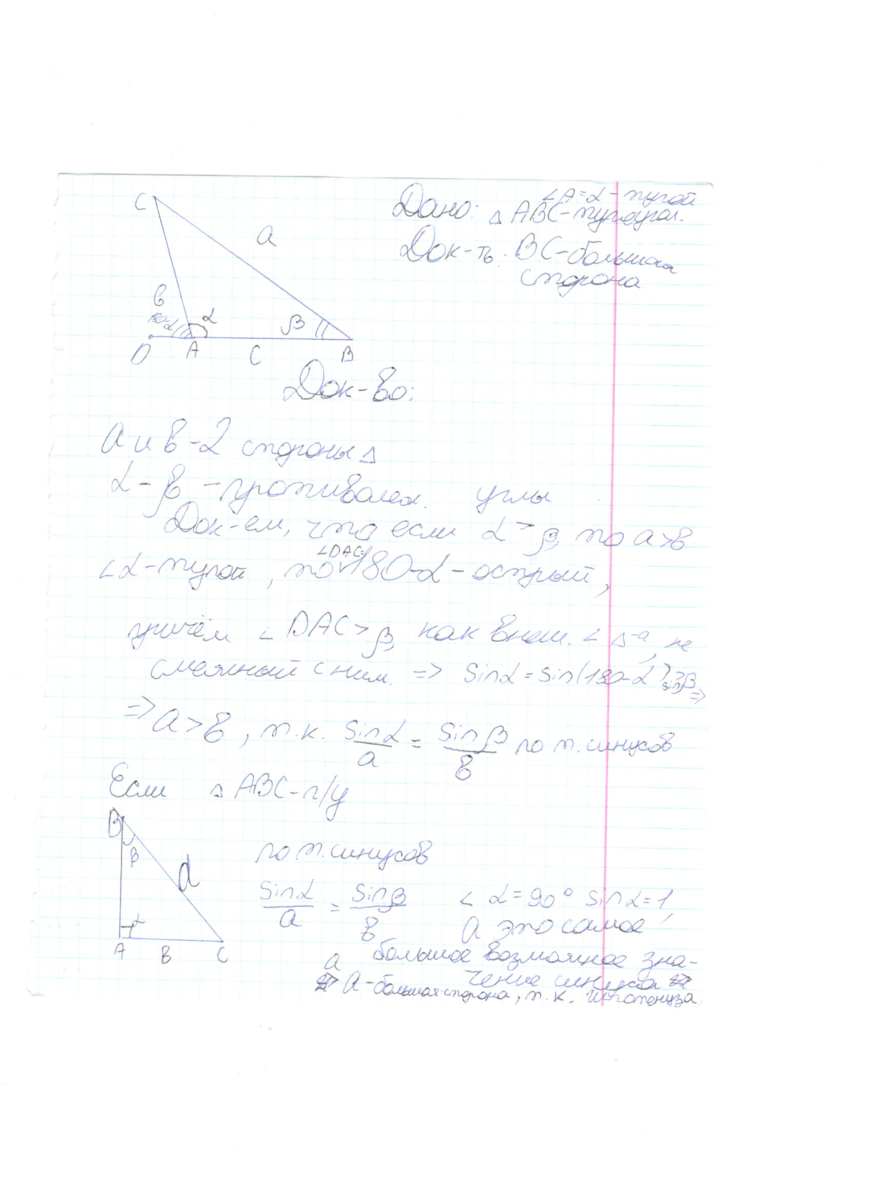 ∠A=α-тупой
Дано: △ABC-тупоугол.
Док-ть: BC-большая
сторона
C
a
b
180-α
α
β
D
A
C
B
Док-во:
a и b-2 стороны △
α-β-противолеж. углы
Док-ем, что если α>β, то a>b
∠α-тупой, то ∠DAC 180-α-острый,
причём ∠DAC>β, как внеш. ∠ △-а, не
смежный с ним. => sinα=sin(180-α)>sinβ =>
=> a>b, т.к. sinα/a = sinβ/b по т.синусов
Если △ABC-п/у
B
β
a
α
A
B
C
по т.синусов
sinα/a = sinβ/b
∠α=90° sinα=1,
а это самое
большое возможное зна-
чение синуса
=> a-большая сторона, т.к. гипотенуза